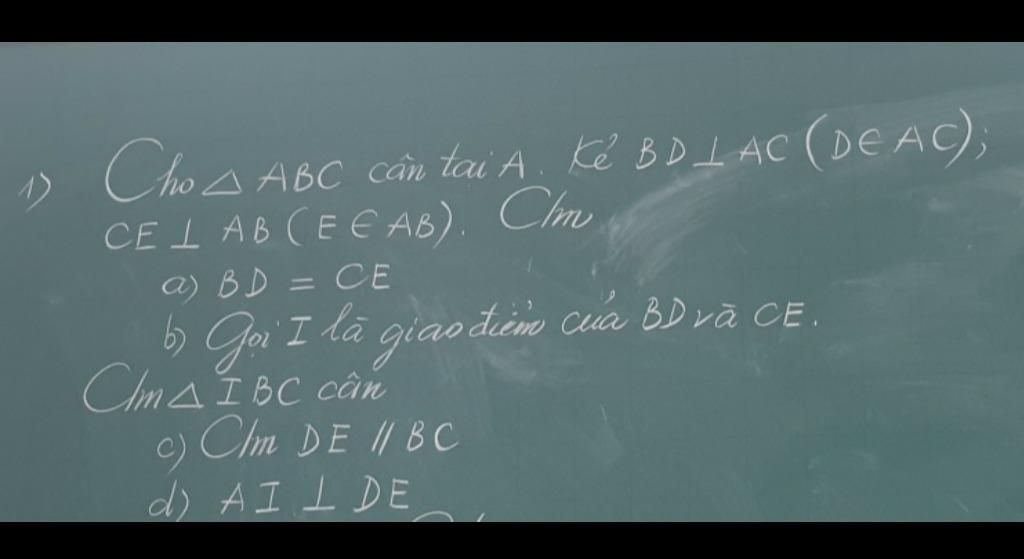 1) Cho △ ABC cân tai A. Kẻ BD ⊥ AC (D ∈ AC);
CE ⊥ AB (E ∈ AB). C/m
a) BD = CE
b) Gọi I là giao điểm của BD và CE.
C/m △ IBC cân
c) C/m DE // BC
d) AI ⊥ DE